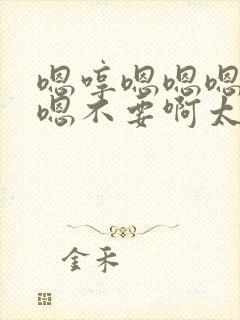 嗯哼嗯嗯嗯
嗯不要啊太
金禾